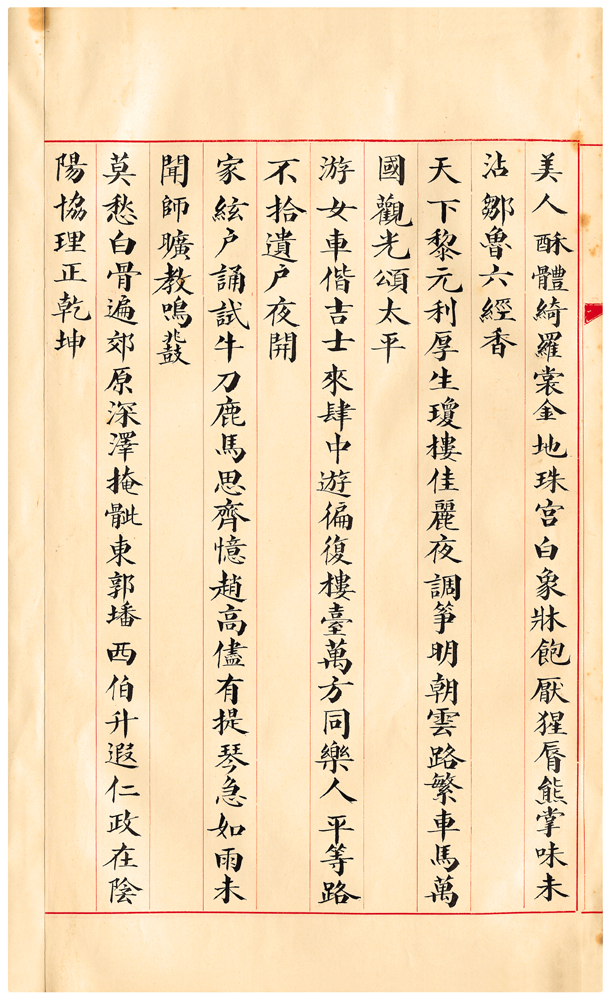 美人酥體綺羅裳金地珠宮白象牀飽厭猩脣熊掌味未
沾鄒魯六經香
天下黎元利厚生瓊樓佳麗夜調箏明朝雲路繁車馬萬
國觀光頌太平
游女車偕吉士來肆中遊徧復樓臺萬方同樂人平等路
不拾遺户夜開
家絃户誦試牛刀鹿馬思齊憶趙高儘有提琴急如雨未
聞師曠教鳴鼛
莫愁白骨遍郊原深澤掩骴東郭墦西伯升遐仁政在陰
陽協理正乾坤